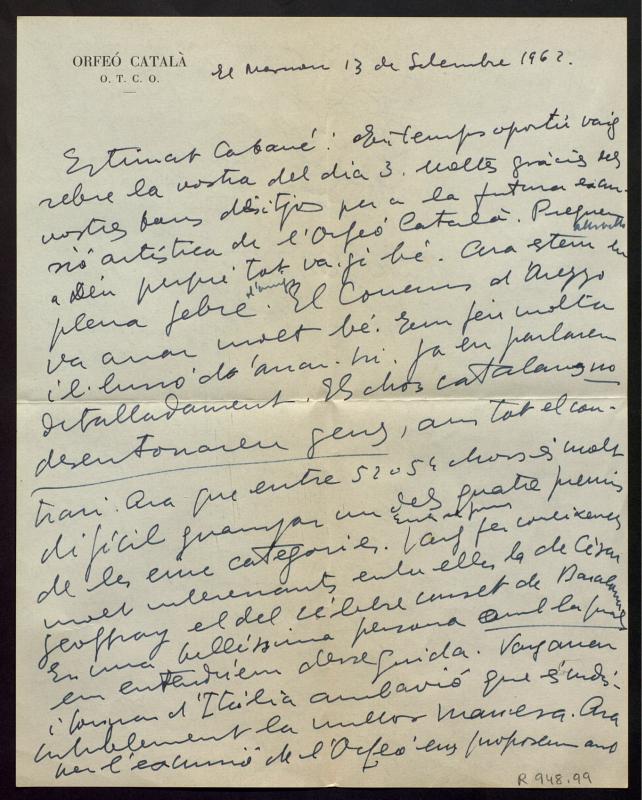 ORFEÓ CATALÀ
O. T. C. O.
El Masnou 13 de Setembre 1962.
Estimat Cabané: En temps oportú vaig
rebre la vostra del dia 3. Moltes gràcies dels
vostres bons desitjos per a la futura excur-
sió artística de l'Orfeó Català. Preguem
a Déu perquè tot vagi bé. Ara estem en
plena febre d'assaigs. El Concurs d'Arezzo
va anar molt bé. Em feia molta
il·lusió d'anar-hi. Ja en parlarem
detalladament. Els chors catalans no
desentonaren gens, ans tot el con-
trari. Ara que entre 52 o 54 chors és molt
difícil guanyar un dels quatre premis
de les cinc categories. Vaig fer coneixences
molt interesants entre elles la de César
Geoffray el del célebre conset de
En una bellíssima persona amb la qual
em entendríem desseguida. Vàrem anar
i tornar d'Itàlia amb avió que és indis-
cutiblement la millor manera. Ara
per l'excursió de l'Orfeó ens proposem
R 948.99